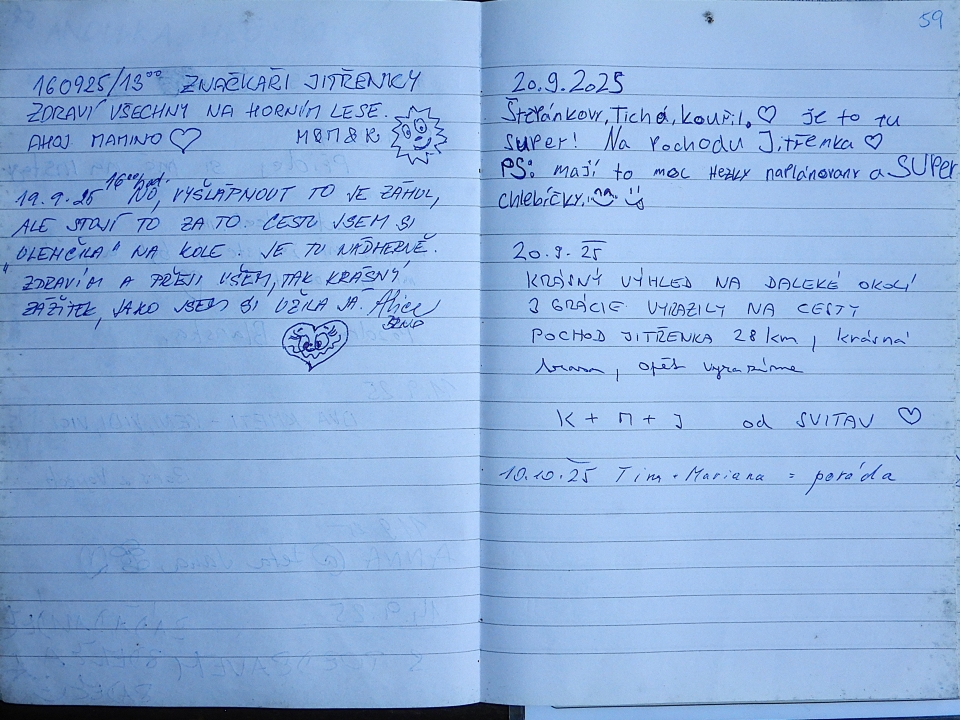 160925/13⁰⁰ ZNAČKAŘI JITŘENKY
ZDRAVÍ VŠECHNY NA HORNÍM LESE.
AHOJ MAMINO ♡ M&M&K
19.9.25 16⁰⁰hod. NO, VYŠLÁPNOUT TO JE ZÁHUL,
ALE STOJÍ TO ZA TO. CESTU JSEM SI
"ULEHČILA" NA KOLE. JE TU NÁDHERNĚ.
ZDRAVÍM A PŘEJI VŠEM, TAK KRÁSNÝ
ZÁŽITEK, JAKO JSEM SI UŽILA JÁ. Alice
BRNO
59
20.9.2025
Štěpánkovi, Tichá, kouřil, ♡ je to tu
super! Na Pochodu Jitřenka ♡
PS: mají to moc HEZKY naplánovaný a SUPER
chlebíčky.
20.9.25
KRÁSNÝ VÝHLED NA DALEKÉ OKOLÍ
3 GRÁCIE VYRAZILY NA CESTY
POCHOD JITŘENKA 28 km, krásná
trasa, opět vyrazíme
K + M + J od SVITAV ♡
10.10.25 Tim + Mariana = paráda